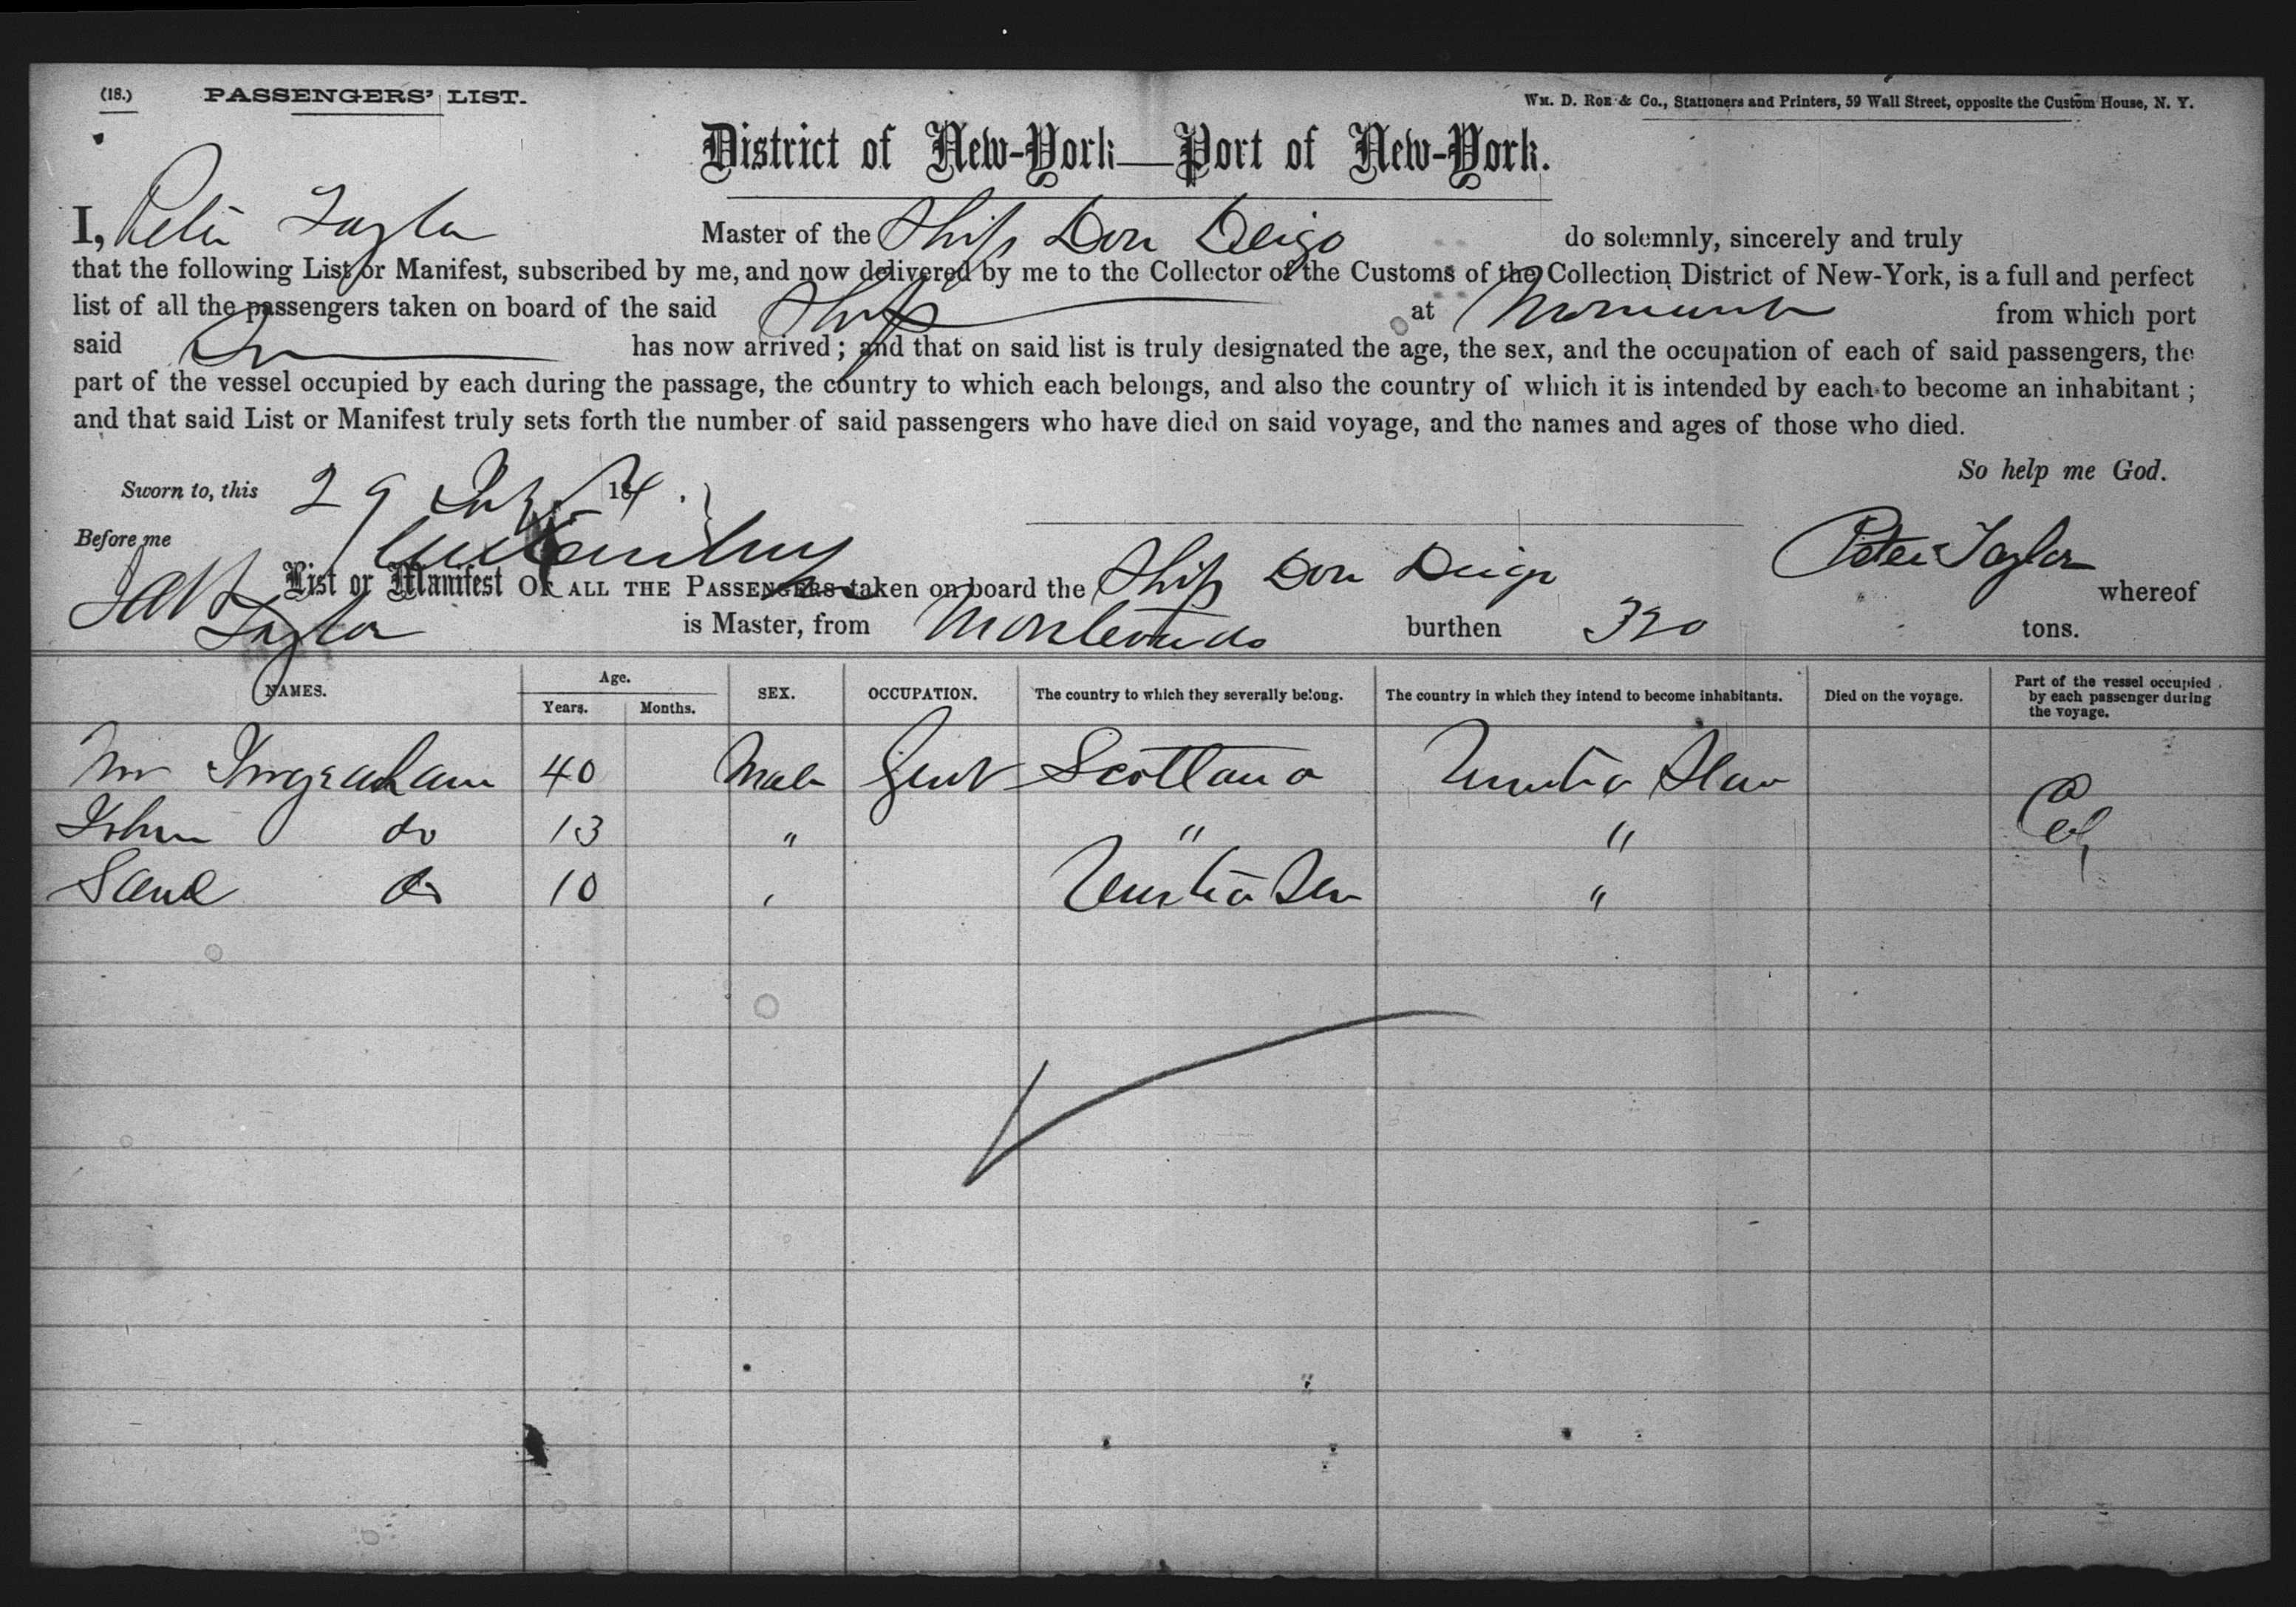 (18.) PASSENGERS' LIST. Wm. D. Roe & Co., Stationers and Printers, 59 Wall Street, opposite the Custom House, N. Y.
District of New-York—Port of New-York.
I, Peter Taylor Master of the Ship Don Deigo do solemnly, sincerely and truly
that the following List or Manifest, subscribed by me, and now delivered by me to the Collector of the Customs of the Collection District of New-York, is a full and perfect
list of all the passengers taken on board of the said Ship at from which port
said has now arrived; and that on said list is truly designated the age, the sex, and the occupation of each of said passengers, the
part of the vessel occupied by each during the passage, the country to which each belongs, and also the country of which it is intended by each to become an inhabitant;
and that said List or Manifest truly sets forth the number of said passengers who have died on said voyage, and the names and ages of those who died.
So help me God.
Sworn to, this 29 18
Before me
Peter Taylor
List or Manifest OF ALL THE PASSENGERS taken on board the Ship Don Deigo whereof
Taylor is Master, from Montevideo burthen 320 tons.
NAMES. Age. Years. Months. SEX. OCCUPATION. The country to which they severally belong. The country in which they intend to become inhabitants. Died on the voyage. Part of the vessel occupied by each passenger during the voyage.
Mr 40 Male Gent Scotland
John do 13 " " "
do 10 "